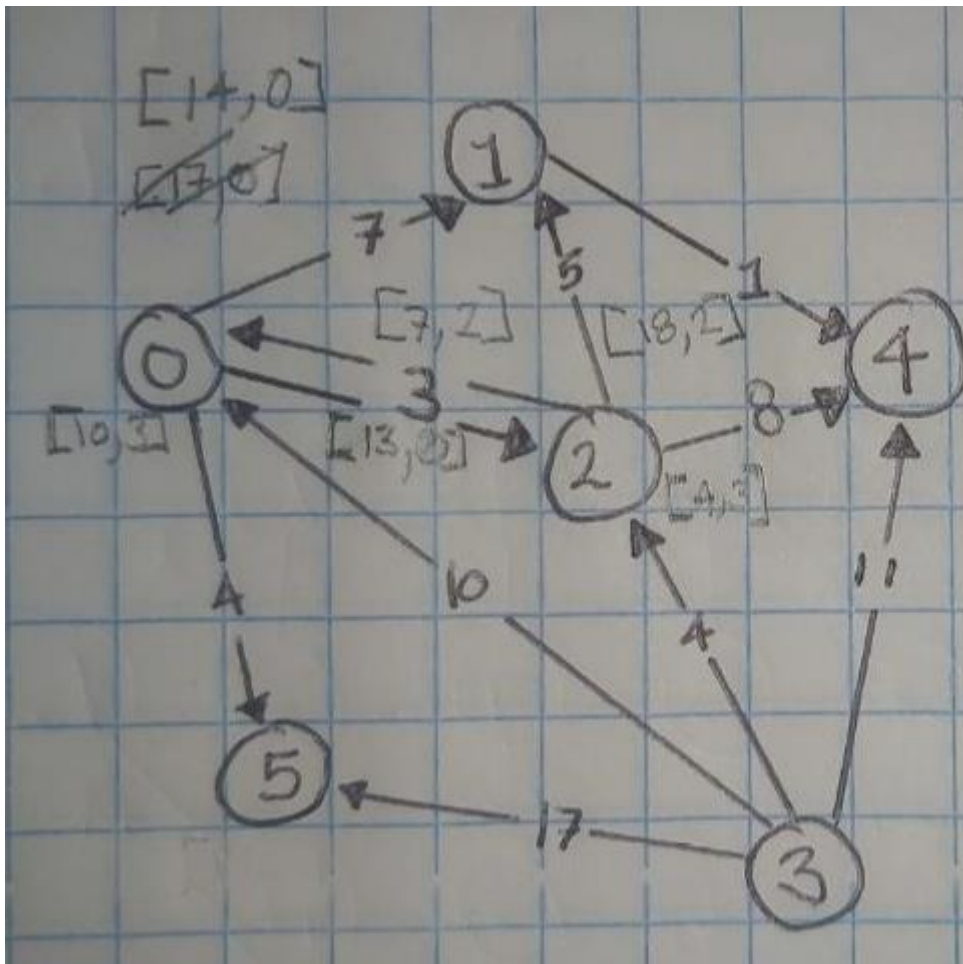 [14,0]
[17,0]
1
7
5
1
[7,2]
[18,2]
0
3
8
4
[10,3]
2
4
10
4
11
5
17
3